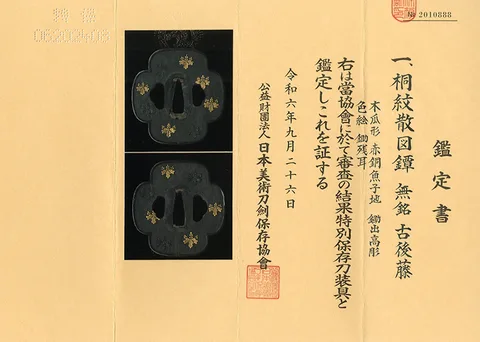 № 2010888
鑑定書
一、桐紋散図鐔 無銘 古後藤
木瓜形 赤銅魚子地 鋤出高彫
色絵 鋤残耳
右は當協會に於て審査の結果特別保存刀装具と
鑑定しこれを証する
令和六年九月二十六日
公益財團法人日本美術刀劍保存協會